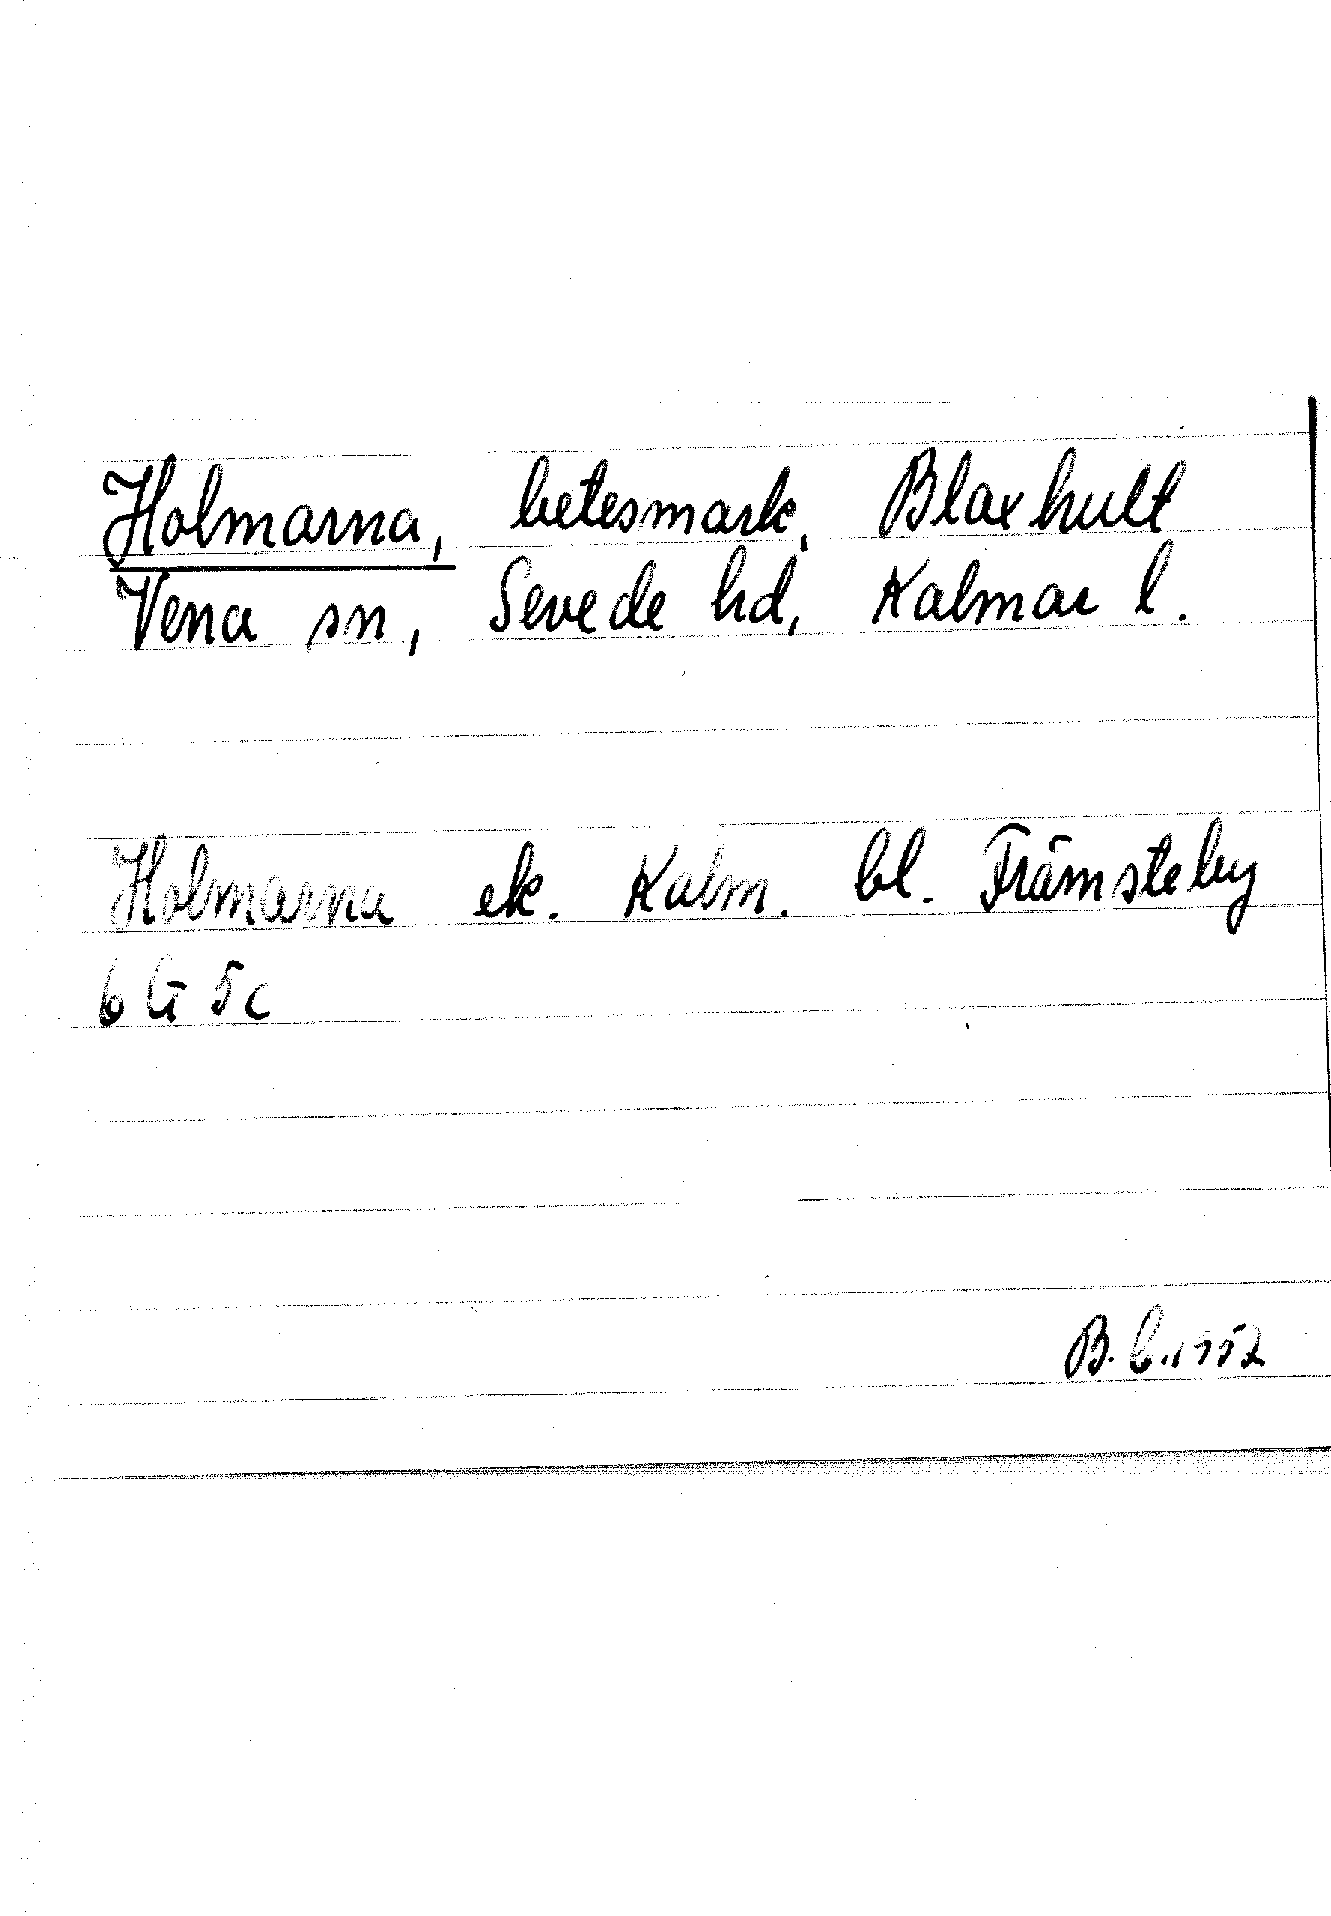 Holmarna, betesmark, Blaxhult
Vena sn, Sevede hd, Kalmar l.
Holmarna ek. Kalm. bl. Främsteby
6 G 5c
B. C. 1952